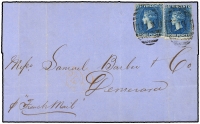 Messrs Samuel Barber & Co
Demerara
p French Mail